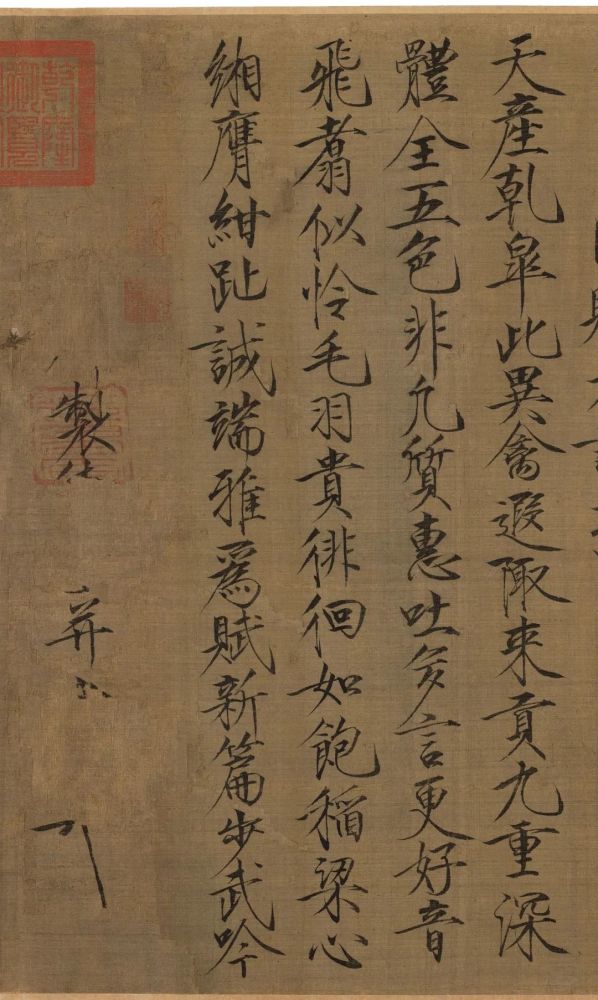 天産乾皋此異禽遐陬来貢九重深
體全五色非凡質惠吐多言更好音
飛翥似怜毛羽貴徘徊如飽稻粱心
緗膺紺趾誠端雅爲賦新篇步武吟
製 并